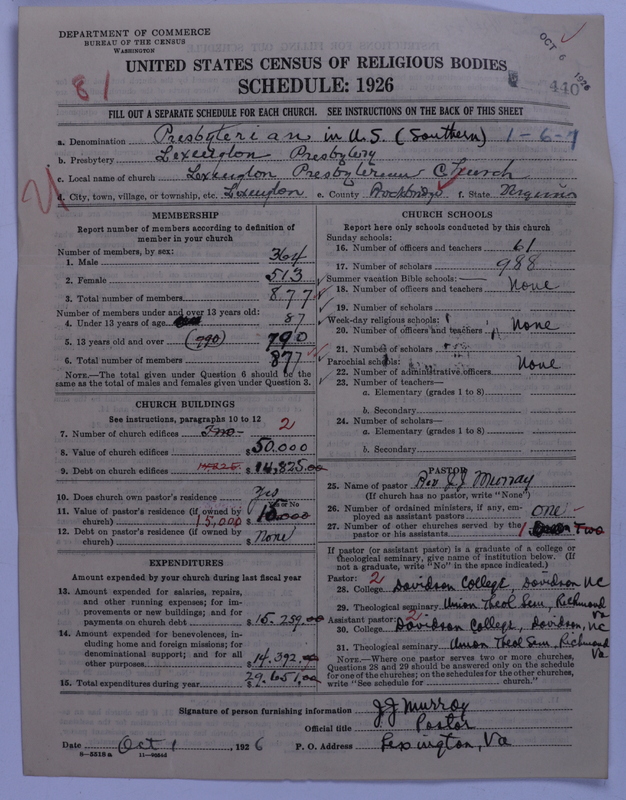 DEPARTMENT OF COMMERCE
BUREAU OF THE CENSUS
WASHINGTON
OCT 6 1926
81
440
UNITED STATES CENSUS OF RELIGIOUS BODIES
SCHEDULE: 1926
FILL OUT A SEPARATE SCHEDULE FOR EACH CHURCH. SEE INSTRUCTIONS ON THE BACK OF THIS SHEET
a. Denomination Presbyterian in U.S. (Southern) 1-6-7
b. Presbytery Lexington Presbytery
c. Local name of church Lexington Presbyterian Church
d. City, town, village, or township, etc. Lexington e. County Rockbridge f. State Virginia
MEMBERSHIP
Report number of members according to definition of
member in your church
Number of members, by sex:
1. Male 364
2. Female 513
3. Total number of members 877
Number of members under and over 13 years old:
4. Under 13 years of age 87
5. 13 years old and over (790) 790
6. Total number of members 877
NOTE.—The total given under Question 6 should be the
same as the total of males and females given under Question 3.
CHURCH BUILDINGS
See instructions, paragraphs 10 to 12
7. Number of church edifices Two 2
8. Value of church edifices $50.000
9. Debt on church edifices $14,825.00
10. Does church own pastor's residence Yes
Yes or No
11. Value of pastor's residence (if owned by
church) 15,000 $15,000
12. Debt on pastor's residence (if owned by
church) $None
EXPENDITURES
Amount expended by your church during last fiscal year
13. Amount expended for salaries, repairs,
and other running expenses; for im-
provements or new buildings; and for
payments on church debt $15.259.00
14. Amount expended for benevolences, in-
cluding home and foreign missions; for
denominational support; and for all
other purposes $14.392.00
15. Total expenditures during year $29.651.00
CHURCH SCHOOLS
Report here only schools conducted by this church
Sunday schools:
16. Number of officers and teachers 61
17. Number of scholars 988
Summer vacation Bible schools:
18. Number of officers and teachers None
19. Number of scholars
Week-day religious schools:
20. Number of officers and teachers None
21. Number of scholars
Parochial schools:
22. Number of administrative officers None
23. Number of teachers—
a. Elementary (grades 1 to 8)
b. Secondary
24. Number of scholars—
a. Elementary (grades 1 to 8)
b. Secondary
PASTOR
25. Name of pastor Rev JJ Murray
(If church has no pastor, write "None")
26. Number of ordained ministers, if any, em-
ployed as assistant pastors one
27. Number of other churches served by the
pastor or his assistants 1 Two
If pastor (or assistant pastor) is a graduate of a college or
theological seminary, give name of institution below. (If
not a graduate, write "No" in the space indicated.)
Pastor: 2
28. College Davidson College, Davidson NC
29. Theological seminary Union Theol Sem, Richmond Va
Assistant pastor: 2
30. College Davidson College, Davidson, NC
31. Theological seminary Union Theol Sem, Richmond Va
NOTE.—Where one pastor serves two or more churches,
Questions 28 and 29 should be answered only on the schedule
for one of the churches; on the schedules for the other churches,
write "See schedule for church."
Signature of person furnishing information JJ Murray
Official title Pastor
Date Oct 1, 1926 P. O. Address Lexington, Va
8—5518a